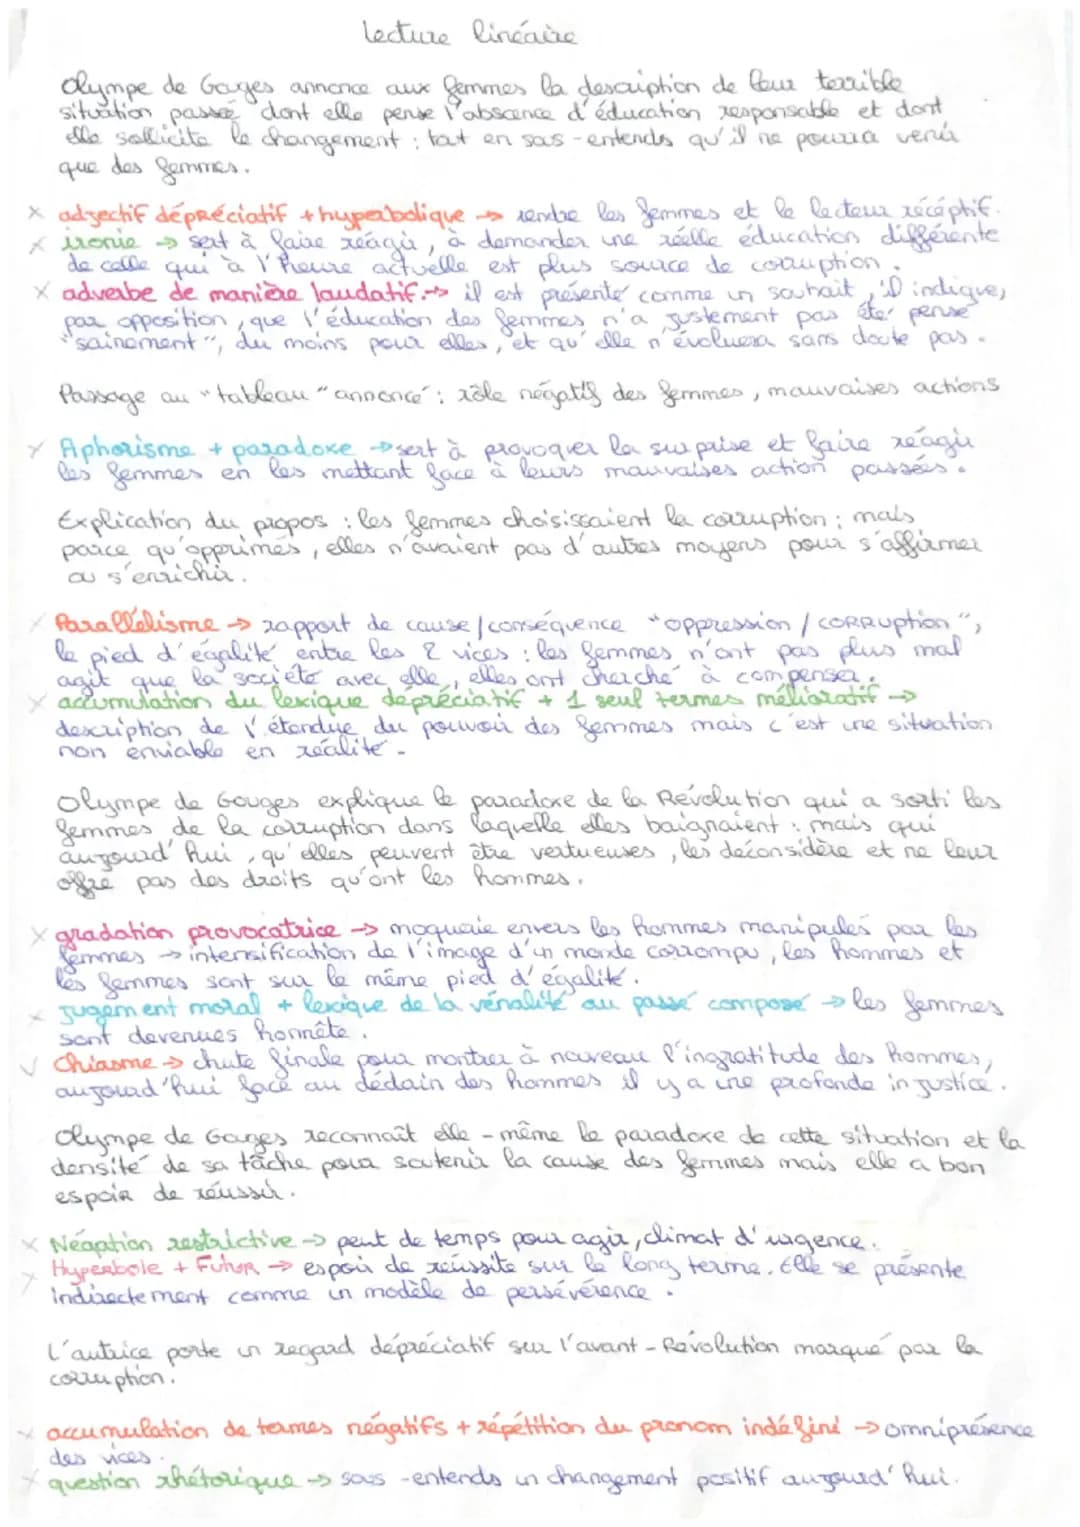 Lecture linéaire
Olympe de Gouges annonce aux femmes la description de leur terrible
situation passé dont elle pense l'abscence d'éducation responsable et dont
elle sollicite le changement : tout en sous-entends qu'il ne pourra venir
que des femmes.
× adjectif dépréciatif + hyperbolique → rendre les femmes et le lecteur récéptif.
× ironie → sert à faire réagir, à demander une réelle éducation différente
de celle qui à l'heure actuelle est plus source de corruption.
× adverbe de manière laudatif. → il est présenté comme un souhait, il indique,
par opposition, que l'éducation des femmes n'a justement pas été pensé
"sainement", du moins pour elles, et qu'elle n'évoluera sans doute pas.
Passage au "tableau" annoncé : rôle négatif des femmes, mauvaises actions
× Aphorisme + paradoxe → sert à provoquer la surprise et faire réagir
les femmes en les mettant face à leurs mauvaises action passées.
Explication du propos : les femmes choisissaient la corruption ; mais
parce qu'opprimés, elles n'avaient pas d'autres moyens pour s'affirmer
ou s'enrichir.
× Parallélisme → rapport de cause/conséquence "oppression / corruption",
le pied d'égalité entre les 2 vices : les femmes n'ont pas plus mal
agit que la société avec elle, elles ont cherché à compenser.
× accumulation du lexique dépréciatif + 1 seul termes mélioratif →
description de l'étendue du pouvoir des femmes mais c'est une situation
non enviable en réalité.
Olympe de Gouges explique le paradoxe de la Révolution qui a sorti les
femmes de la corruption dans laquelle elles baignaient : mais qui
aujourd'hui, qu'elles peuvent être vertueuses, les déconsidère et ne leur
offre pas des droits qu'ont les hommes.
× gradation provocatrice → moquerie envers les hommes manipulés par les
femmes → intensification de l'image d'un monde corrompu, les hommes et
les femmes sont sur le même pied d'égalité.
× jugement moral + lexique de la vénalité au passé composé → les femmes
sont devenues honnête.
√ Chiasme → chute finale pour montrer à nouveau l'ingratitude des hommes,
aujourd'hui face au dédain des hommes il y a une profonde injustice.
Olympe de Gouges reconnaît elle-même le paradoxe de cette situation et la
densité de sa tâche pour soutenir la cause des femmes mais elle a bon
espoir de réussir.
× Négation restrictive → peut de temps pour agir, climat d'urgence.
× Hyperbole + Futur → espoir de réussite sur le long terme. Elle se présente
indirectement comme un modèle de persévérence.
L'autrice porte un regard dépréciatif sur l'avant-Révolution marqué par la
corruption.
× accumulation de termes négatifs + répétition du pronom indéfini → omniprésence
des vices.
× question rhétorique → sous-entends un changement positif aujourd'hui.